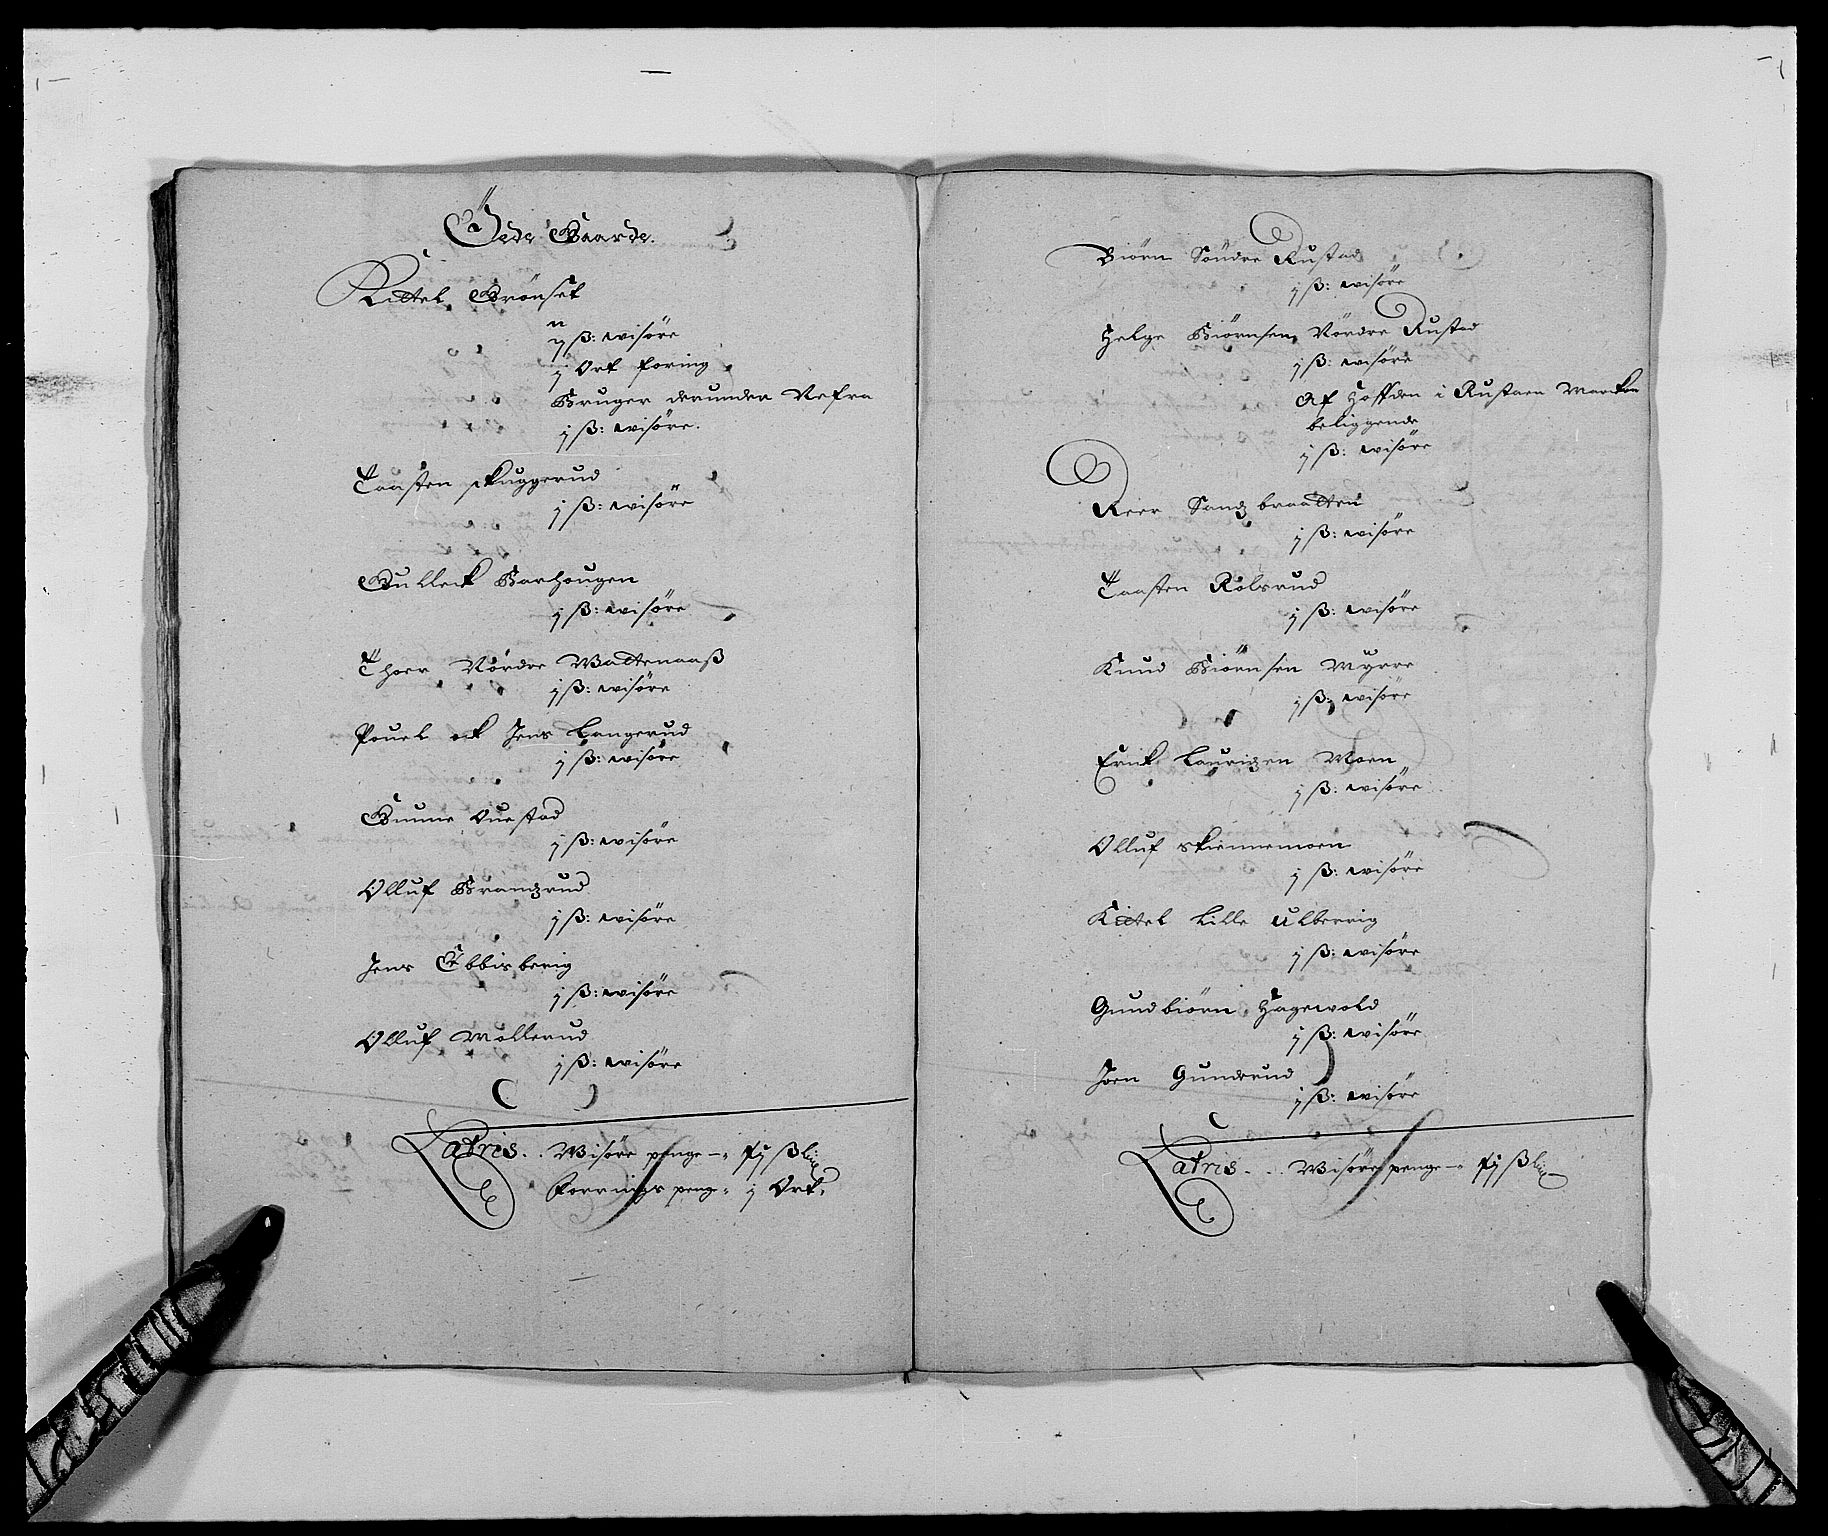 Øde Gaarde.
Kittel Grönset
ij ß: wisöre
j Ort foring
Bruger derunder Nefra
j ß: wisöre.
Taasten skuggerud
j ß: wisöre
Gulleck Barhougen
j ß: wisöre
Thoer Nördre Wattenaaß
j ß: wisöre
Pouel ock Jens Langerud
j ß: wisöre
Gunne Ouestad
j ß: wisöre
Olluf Brandzrud
j ß: wisöre
Jens Ebbisberig
j ß: wisöre
Olluf Wollerud
j ß: wisöre
Latris.. Wisöre penge
Forrings peng j Ort.
Biörn Söndre Rustad
j ß: wisöre
Helge Biörnsen Nördre Rustad
j ß: wisöre
Af Hoffden i Rustaen Marken
beliggende
j ß: wisöre
Reer Sandzbraatten
j ß: wisöre
Taasten Rolsrud
j ß: wisöre
Knud Biörnsen Myrre
j ß: wisöre
Erick Lauridzen Moen
j ß: wisöre
Olluf skiennemoen
j ß: wisöre
Kittel Lille Ulberrig
j ß: wisöre
Gundbiörn Hagewold
j ß: wisöre
Joen Gunderud
j ß: wisöre
Latris... Wisöre penge